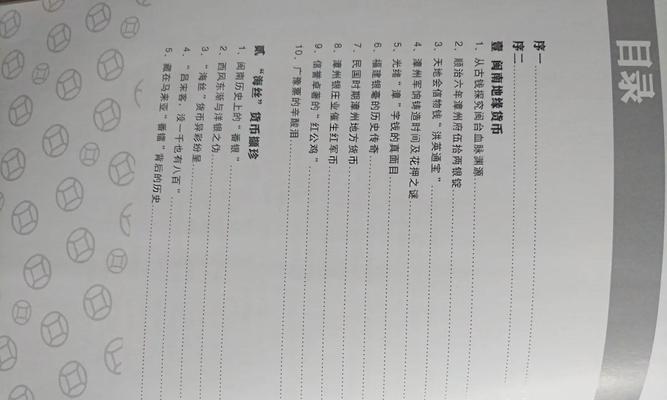 目录
序一
序二
壹 闽南地缘货币
1、从古钱探究闽台血脉渊源
2、顺治六年漳州府伍拾两银锭
3、天地会信物钱“洪英通宝”
4、漳州军饷铸造时间及花押之谜
5、光绪“漳”字钱的真面目
6、福建银毫的历史传奇
7、民国时期漳州地方货币
8、漳州银庄业催生红军币
9、信誉卓著的“红公鸡”
10、广豫票的辛酸泪
贰 “海丝”货币撷珍
1、闽南历史上的“番银”
2、西风东渐与洋银之伪
3、“海丝”货币异彩纷呈
4、“吕宋客，没一千也有八百”
5、藏在马来亚“番镭”背后的历史